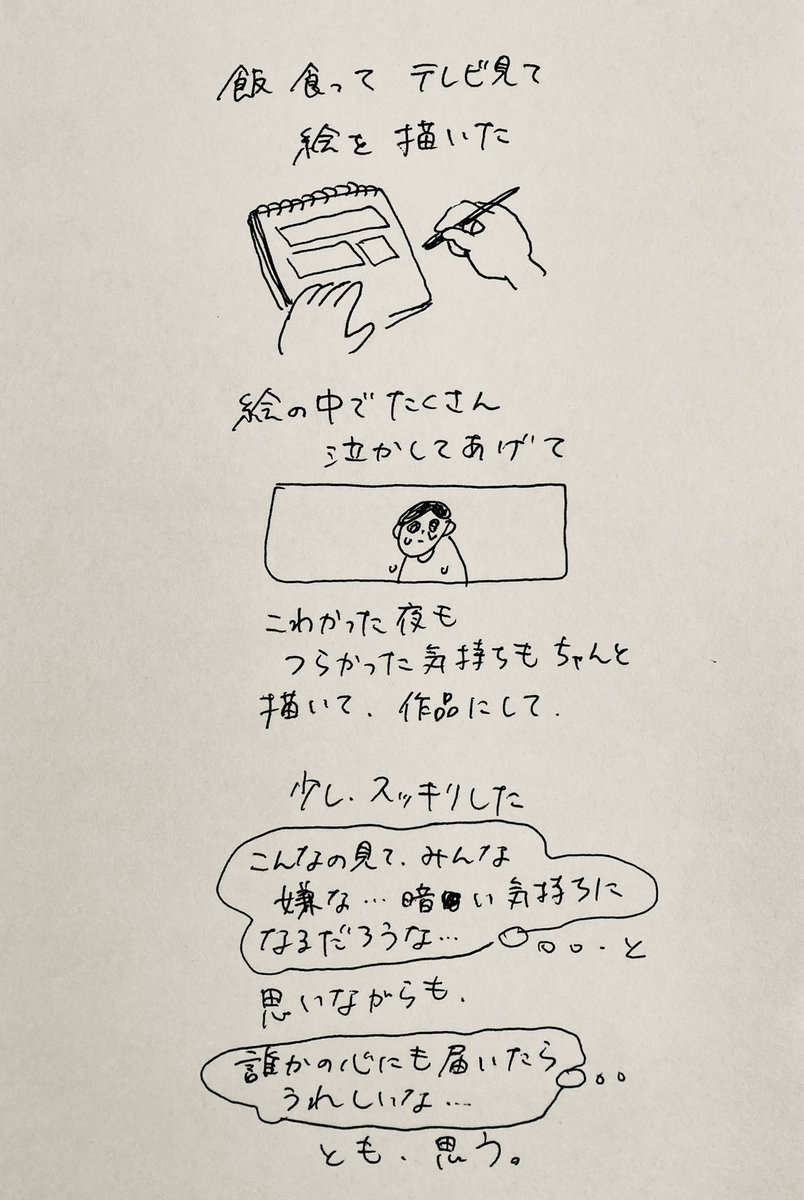 飯 食って テレビ見て
絵を 描いた
絵の中で たくさん
泣かしてあげて
こわかった 夜も
つらかった 気持ちも ちゃんと
描いて、作品にして、
少し、スッキリした
こんなの見て、みんな
嫌な…暗い気持ちに
なるだろうな… と
思いながらも、
誰かの心にも届いたら
うれしいな…
とも、思う。